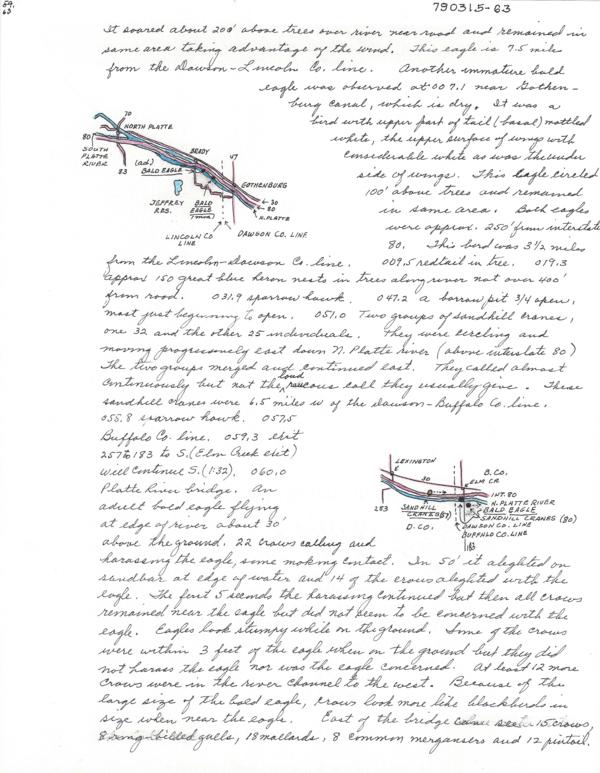 59.
63
790315-63
It soared about 200' above trees over river near road and remained in
same area taking advantage of the wind. This eagle is 7.5 miles
from the Dawson-Lincoln Co. line. Another immature bald
eagle was observed at 007.1 near Gothen-
burg canal, which is dry. It was a
bird with upper part of tail (basal) mottled
white, the upper surface of wings with
considerable white as was the under
side of wings. This Eagle circled
100' above trees and remained
in same area. Both eagles
were approx. 250' from interstate
80. This bird was 3 1/2 miles
70
NORTH PLATTE
80
SOUTH
PLATTE
RIVER
83
(ad.)
BALD EAGLE
BRADY
47
GOTHENBURG
JEFFREY
RES.
BALD
EAGLE
(imm)
30
80
N. PLATTE
LINCOLN CO
LINE
DAWSON CO. LINE
from the Lincoln-Dawson Co. line. 009.5 redtail in tree. 019.3
approx 150 great blue heron nests in trees along river not over 400'
from road. 031.9 sparrow hawk. 047.2 a borrow pit 3/4 open,
most just beginning to open. 051.0 Two groups of sandhill cranes,
one 32 and the other 25 individuals. They were circling and
moving progressively east down N. Platte river (above interstate 80)
The two groups merged and continued east. They called almost
continuously but not the loud raucous call they usually give. These
sandhill cranes were 6.5 miles w of the Dawson-Buffalo Co. line.
055.8 sparrow hawk. 057.5
Buffalo Co. line. 059.3 exit
257 to 183 to S. (Elm Creek exit)
Will continue S. (1:32). 060.0
Platte River bridge. An
adult bald eagle flying
at edge of river about 30'
LEXINGTON
E
30
B. CO.
ELM CR
INT. 80
N. PLATTE RIVER
BALD EAGLE
283
SANDHILL
CRANES (57)
SANDHILL CRANES (80)
D. CO.
DAWSON CO. LINE
BUFFALO CO. LINE
183
above the ground. 22 crows calling and
harassing the eagle, some making contact. In 50' it alighted on
sandbar at edge of water and 14 of the crows alighted with the
eagle. The first 5 seconds the harassing continued but then all crows
remained near the eagle but did not seem to be concerned with the
eagle. Eagles look stumpy while on the ground. Some of the crows
were within 3 feet of the eagle when on the ground but they did
not harass the eagle nor was the eagle concerned. At least 12 more
crows were in the river channel to the west. Because of the
large size of the bald eagle, crows look more like blackbirds in
size when near the eagle. East of the bridge 15 crows,
8 ring-billed gulls, 18 mallards, 8 common mergansers and 12 pintail.